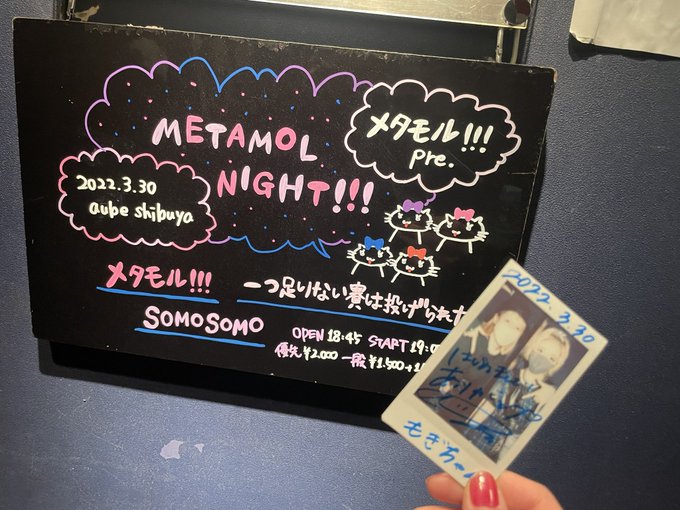 METAMOL
NIGHT!!!
メタモル!!!
pre.
2022.3.30
aube shibuya
メタモル!!!
一つ足りない賽は投げられた
SOMOSOMO
OPEN 18:45 START 19:0
優先¥2,000 一般¥1,500+1
2022.3.30
もぎちゃん